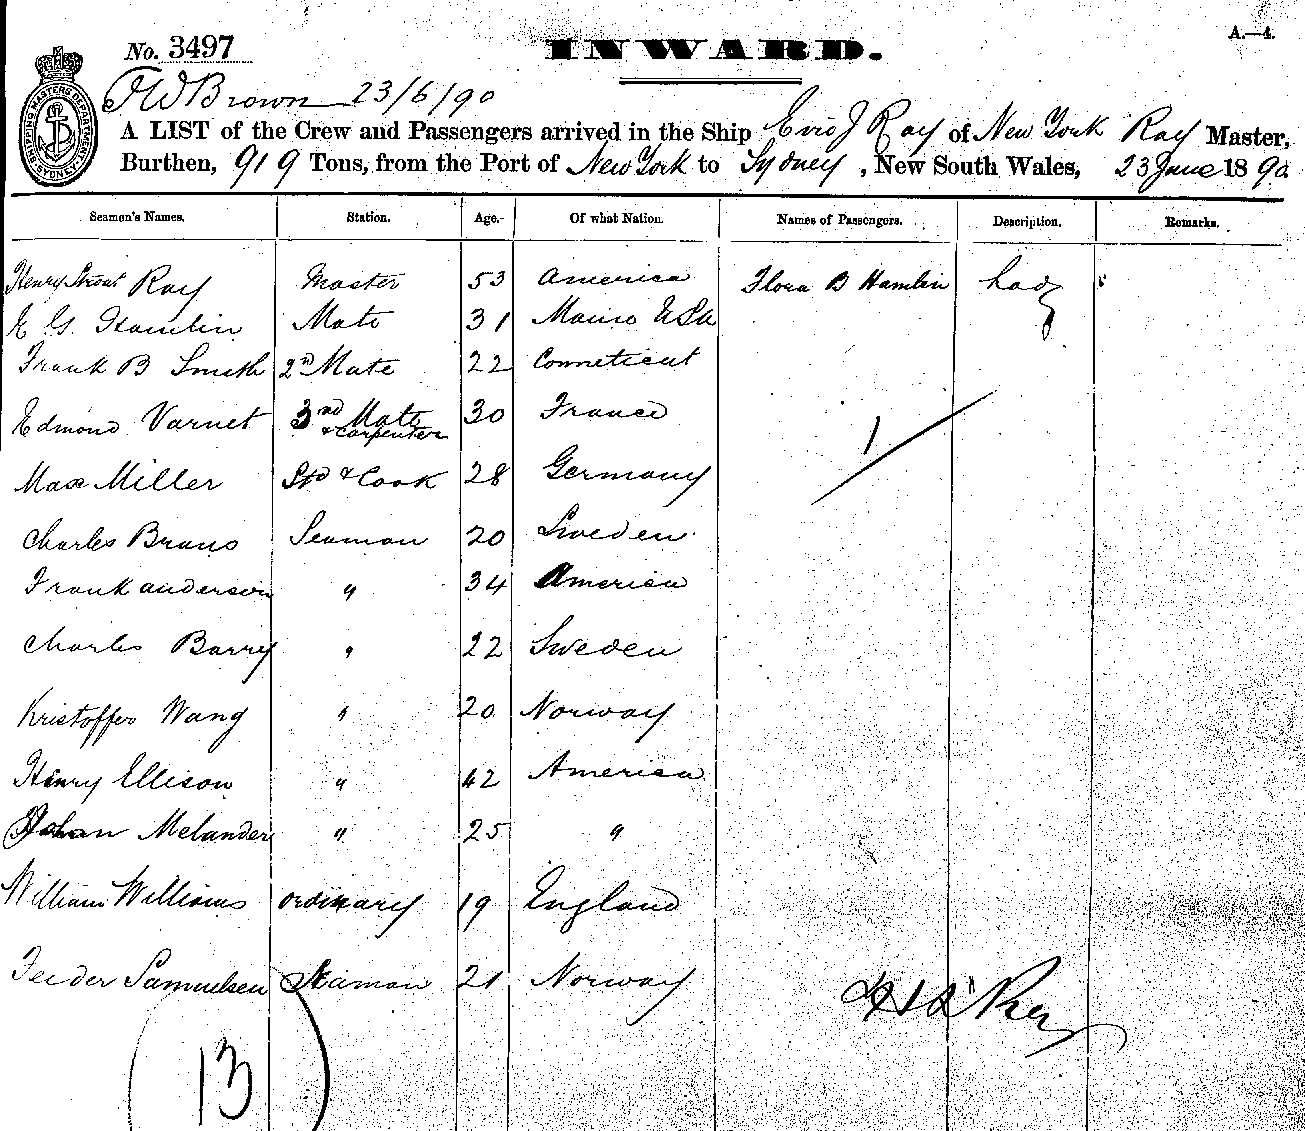 A.—4.
No. 3497
INWARD.
SHIPPING MASTERS DEPARTMENT SYDNEY
H W Brown 23/6/90
A LIST of the Crew and Passengers arrived in the Ship Evie J Ray of New York Ray Master,
Burthen, 919 Tons, from the Port of New York to Sydney, New South Wales, 23 June 1890
Seamen's Names. Station. Age. Of what Nation. Names of Passengers. Description. Remarks.
Henry Strout Ray Master 53 America Flora B Hamlin Lady
E. G. Hamlin Mate 31 Maine USA
Frank B Smith 2nd Mate 22 Conneticut
Edmond Varnet 3nd Mate 30 France
& Carpenter
1
Max Miller Std & Cook 28 Germany
Charles Brans Seaman 20 Sweden
Frank anderson " 34 America
Charles Barry " 22 Sweden
Kristoffer Wang " 20 Norway
Henry Ellison " 42 America
Johan Melander " 25 "
William Williams ordinary 19 England
Samuelsen Seaman 21 Norway
Ray
13